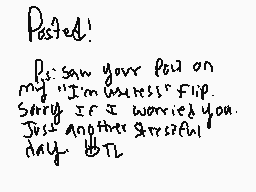 Posted!
Ps: saw your Post on
my "I'm useless" flip.
Sorry If I worried you.
Just another stressful
day. TL